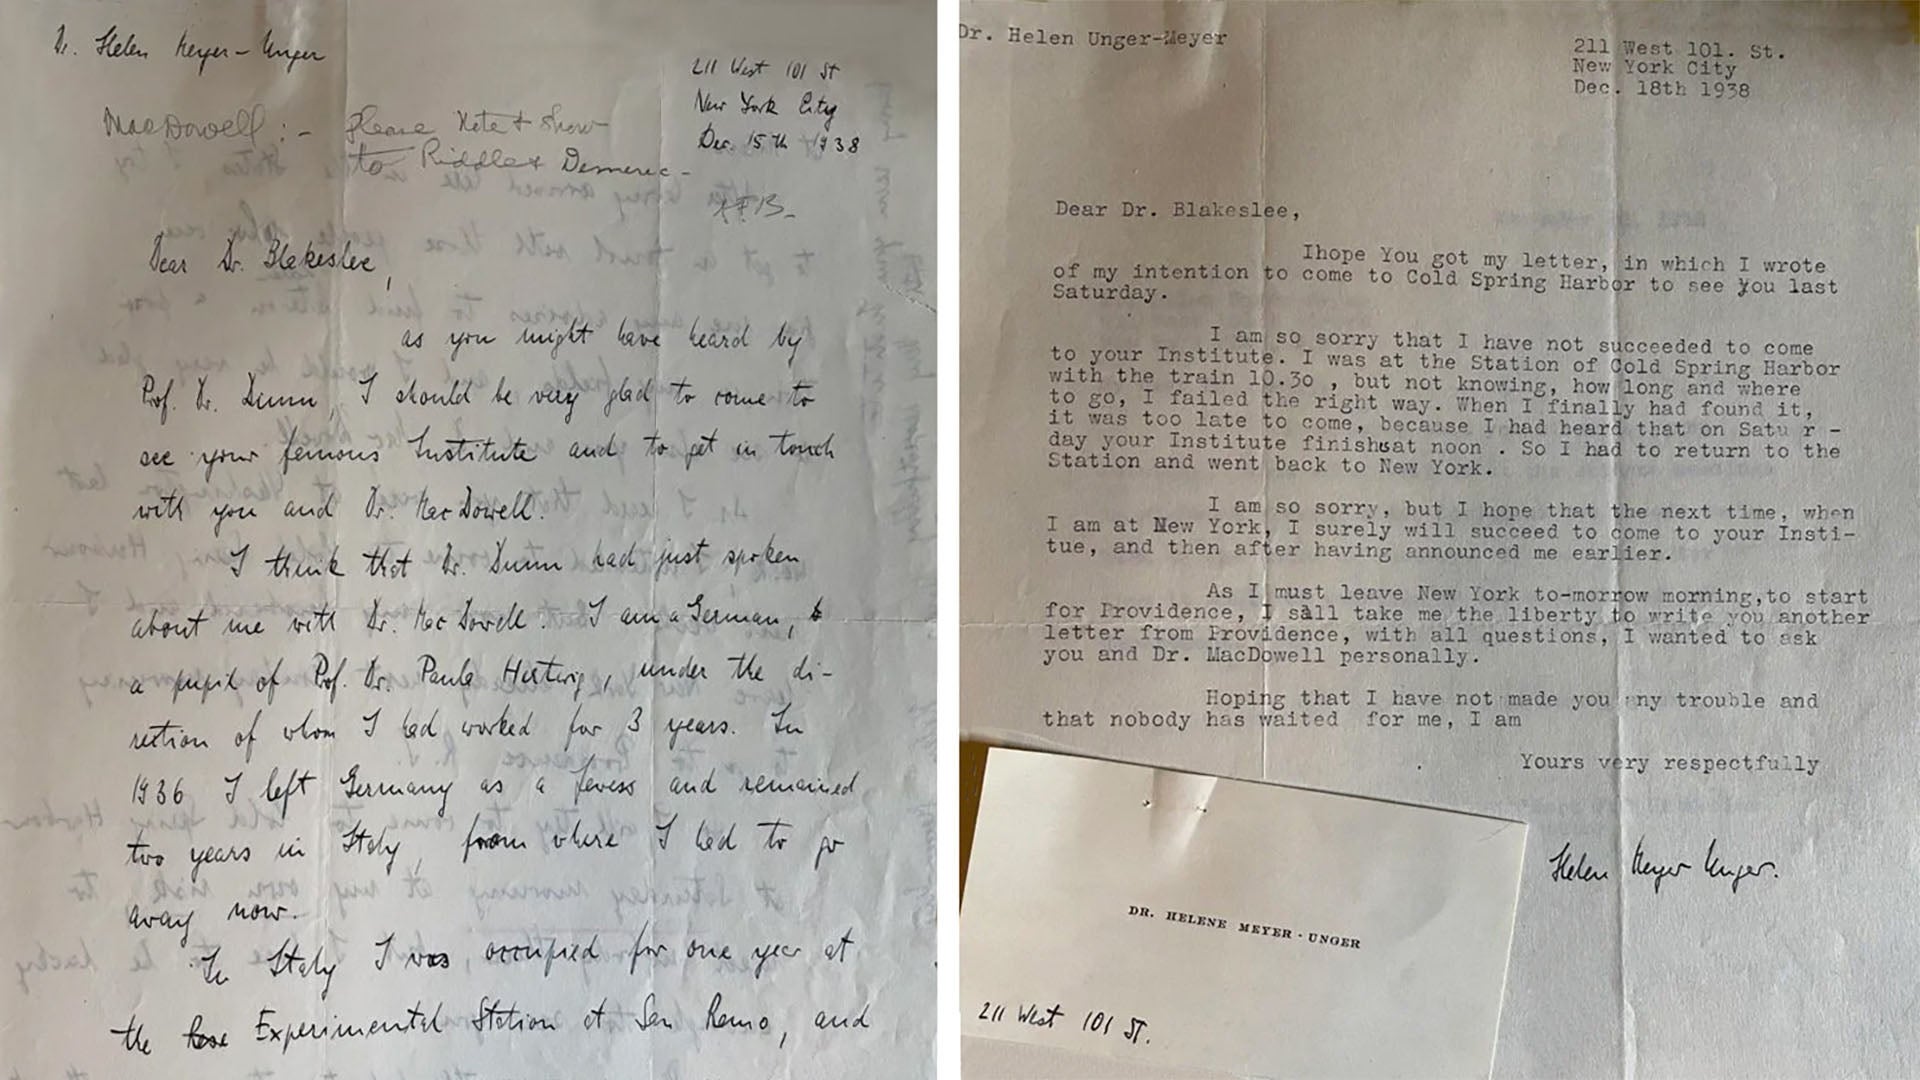 Dr. Helen Meyer-Unger
211 West 101 St
New York City
Dec. 15th 1938
MacDowell :- Please Note & Show
to Riddle & Demerec -
AFB-
Dear Dr. Blakeslee,
as you might have heard by
Prof. Dr. Dunn, I should be very glad to come to
see your femous Institute and to get in touch
with you and Dr. Mac Dowell.
I think that Dr. Dunn had just spoken
about me with Dr. Mac Dowell. I am a German,
a pupil of Prof. Dr. Paula Hertwig, under the di-
rection of whom I had worked for 3 years. In
1936 I left Germany as a and remained
two years in Italy, from where I had to go
away now.
In Italy I was occupied for one year at
the Experimental Station at San Remo, and
Dr. Helen Unger-Meyer
211 West 101. St.
New York City
Dec. 18th 1938
Dear Dr. Blakeslee,
Ihope You got my letter, in which I wrote
of my intention to come to Cold Spring Harbor to see you last
Saturday.
I am so sorry that I have not succeeded to come
to your Institute. I was at the Station of Cold Spring Harbor
with the train 10.30 , but not knowing, how long and where
to go, I failed the right way. When I finally had found it,
it was too late to come, because I had heard that on Satu r -
day your Institute finishsat noon . So I had to return to the
Station and went back to New York.
I am so sorry, but I hope that the next time, when
I am at New York, I surely will succeed to come to your Insti-
tue, and then after having announced me earlier.
As I must leave New York to-morrow morning,to start
for Providence, I sall take me the liberty to write you another
letter from Providence, with all questions, I wanted to ask
you and Dr. MacDowell personally.
Hoping that I have not made you any trouble and
that nobody has waited for me, I am
Yours very respectfully
Helen Meyer Unger.
DR. HELENE MEYER-UNGER
211 West 101 ST.